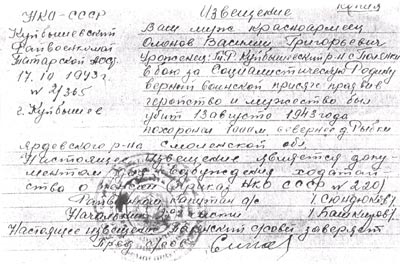 копия
НКО-СССР
Куйбышевский
Райвоенкомат
Татарской АССР
17.10 1943 г.
N 2/365
г. Куйбышев
Извещение
Ваш муж красноармеец
Василий Григорьевич
Уроженец: ТАССР Куйбышевский р-н
в бою за Социалистическую Родину
верный воинской присяге проявив
геройство и мужество был
убит 13 августа 1943 года
похоронен 1000 м. севернее д. Рыбки
ярцевского р-на Смоленской обл.
Настоящее извещение является доку-
ментом для возбуждения ходатай-
ства о пенсии (приказ НКО СССР N 220)
Райвоенком капитан а/с
Начальник части /Башкиров/
Настоящее извещение заверяет
Пред.